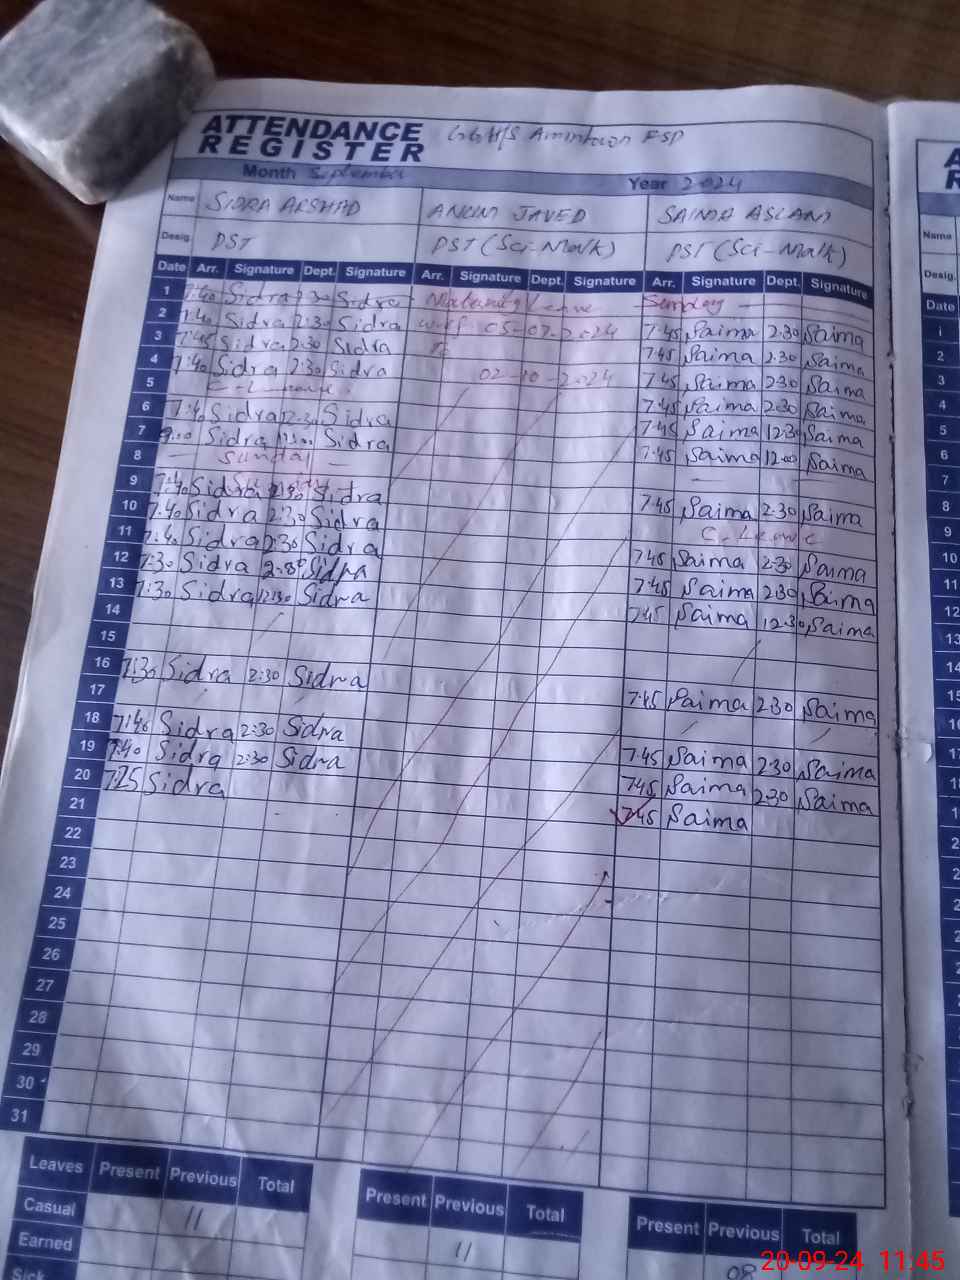 ATTENDANCE
REGISTER
FSD
Month September Year 2024
Name SIDRA ARSHAD JAVED SAIMA ASLAM
Desig. PST PST (Sci-Math) PST (Sci-Math)
Date Arr. Signature Dept. Signature Arr. Signature Dept. Signature Arr. Signature Dept. Signature
1 7:40 Sidra 2:30 Sidra Maternity Leave Sunday
2 7:40 Sidra 2:30 Sidra w.e.f 05-07-2024 7:45 Saima 2:30 Saima
3 7:45 Sidra 2:30 Sidra To 7:45 Saima 2:30 Saima
4 7:40 Sidra 2:30 Sidra 02-10-2024 7:45 Saima 2:30 Saima
5 C-Leave 7:45 Saima 2:30 Saima
6 7:40 Sidra 12:30 Sidra 7:45 Saima 12:30 Saima
7 Sidra 12:00 Sidra 7:45 Saima 12:00 Saima
8 Sunday
9 7:40 Sidra 2:30 Sidra 7:45 Saima 2:30 Saima
10 7:40 Sidra 2:30 Sidra C-Leave
11 7:40 Sidra 2:30 Sidra 7:45 Saima 2:30 Saima
12 7:30 Sidra 2:30 Sidra 7:45 Saima 2:30 Saima
13 7:30 Sidra 12:30 Sidra 7:45 Saima 12:30 Saima
14
15
16 7:30 Sidra 2:30 Sidra 7:45 Saima 2:30 Saima
17
18 7:40 Sidra 2:30 Sidra 7:45 Saima 2:30 Saima
19 7:40 Sidra 2:30 Sidra 7:45 Saima 2:30 Saima
20 7:25 Sidra 7:45 Saima
21
22
23
24
25
26
27
28
29
30
31
Leaves Present Previous Total Present Previous Total Present Previous Total
Casual 11 11 08
Earned
Sick
A
R
Name
Desig.
Date
1
2
3
4
5
6
7
8
9
10
11
12
13
14
15
16
17
20-09-24 11:45